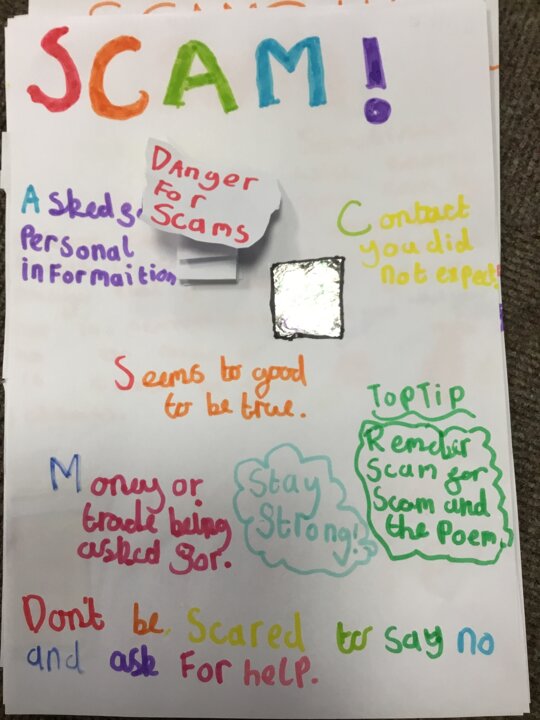 SCAM!
Danger
For
Scams
Asked
Personal
informaition
Contact
you did
not expect
Seems to good
to be true.
Top Tip
Remeber
Scam for
Scam and
the Poem
Money or
trade being
asked for.
Stay
Strong!
Don't be Scared to say no
and ask For help.